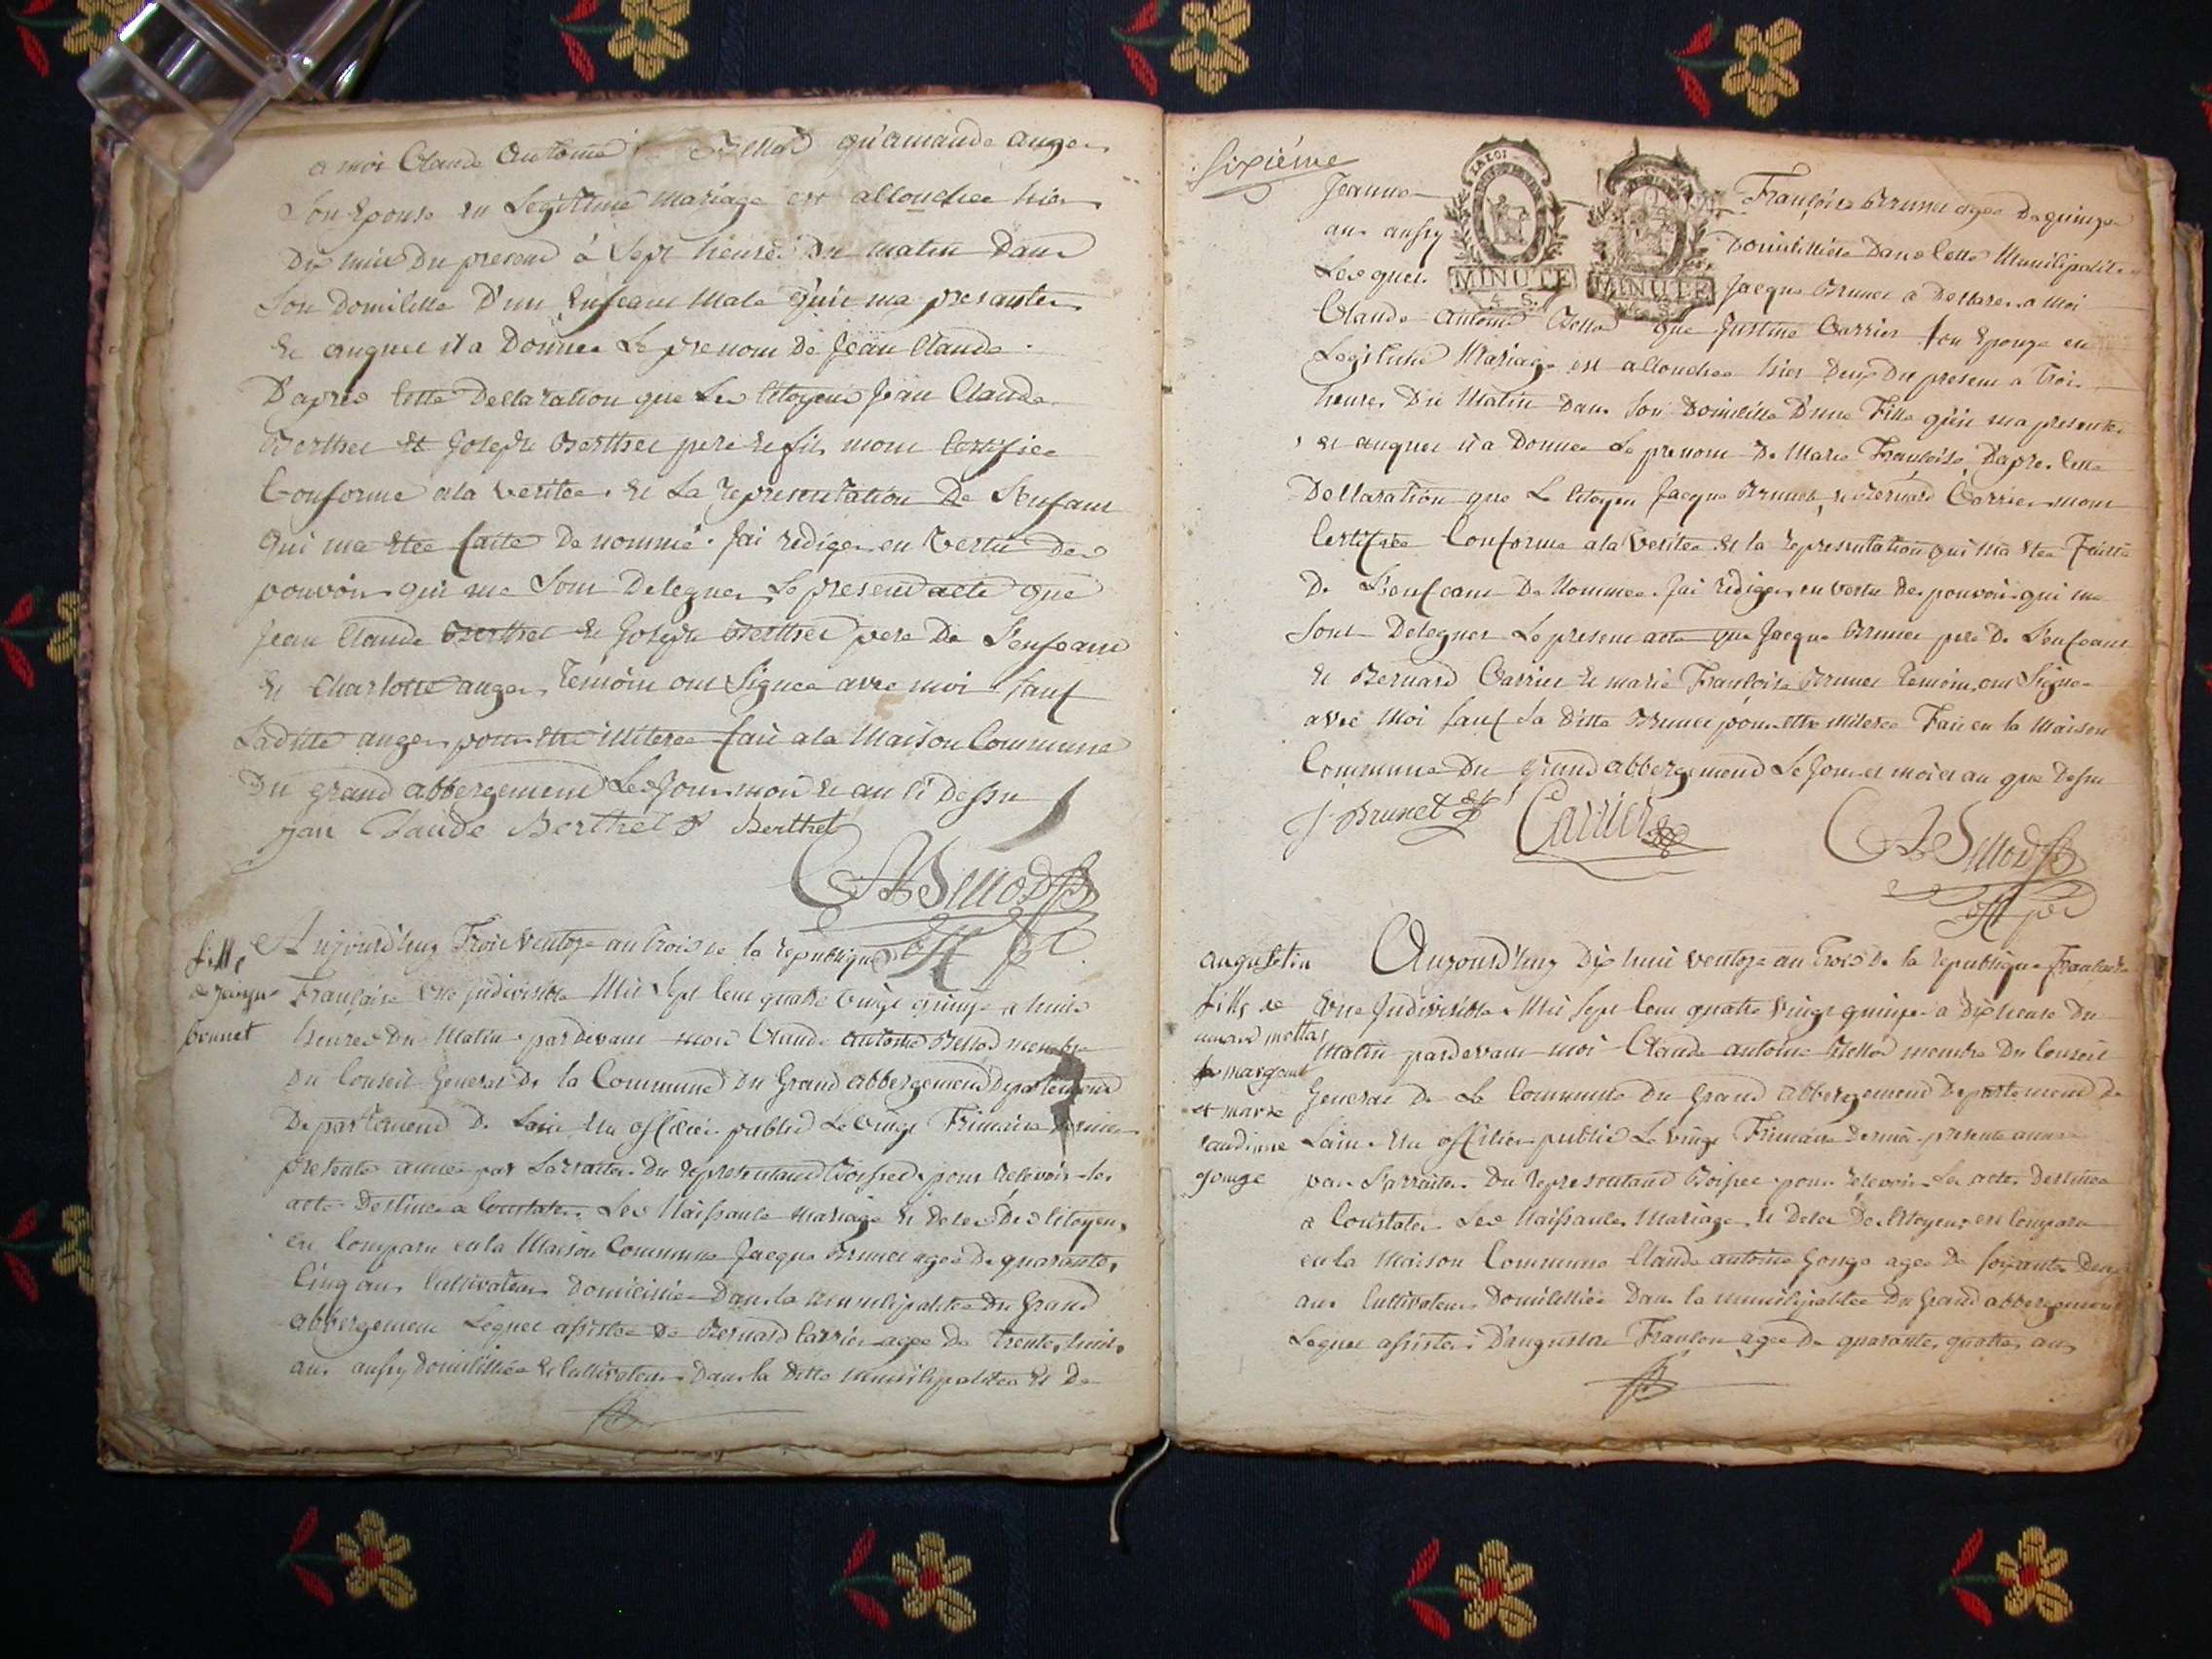 a moi Claude Antoine Bellod qu'amande auger
Son Epouse en Legitime mariage est allouchee hier
Dix huit Du present á Sept heures Du matin Dans
Son Domicille D'un Enfeant Male qu'il ma presanter
Et auquel il a Donnee Le prenom De Jean Claude.
D'apres Cette Declaration que Les Citoyens Jean Claude
Berthet Et Joseph Berthet pere et fils mont Certifiee
Conforme ala veritee. Et La representation De L'enfant
qui ma Etee faite De nommé. Jai rediger en Vertu Des
pouvoirs qui me Sont Deleguer Le present acte que
Jean Claude Berthet Et Joseph Berthet pere De L'enfeant
Et Charlotte auger Temoins ont Signee avec moi Sauf
Ladite auger pour être illiteree fait ala Maison Commune
Du grand abbergement Les Jour mois Et an ci Dessu
jan Claude Berthet J Berthet
fille de jacque brunet
Aujourd'huy Trois Ventose an trois de la republique
Françoise Une Indivisible Mil Sept Cent quatre vingt quinze a huit
heures Du Matin pardevant moi Claude antoine Bellod membre
Du Conseil General De la Commune Du Grand abbergement Departement
Departement De Lain Elu officier public Le vingt Frimaire Dernier
presente annee par Larraiter Du representand Boisset pour recevoir les
acte Destinee a Constater Les Naissance Mariage et Deces Des Citoyens
est Comparu en la Maison Commune Jacque Brunet agee De quarante
Cinq ans Cultivateur Domicilié Dans la municipalitee Du Grand
abbergement Lequel assistee de Bernard Carrier agee De trente huit
ans aussy Domicilliée Et Cultivateur Dans la Ditte municipalitee Et De
Sixiéme
LA LOI
MINUTE
4 S.
MINUTE
Jeanne Françoise Brunet agee De quinze
ans aussy Domicilliée Dans Cette Municipalitee
Lesquel Jacque Brunet a Declarer a Moi
Claude Antoine Bellod que Justine Carrier Son Epouze en
Legitime Mariage est allouchee hier Deux Du present a Trois
heures Du Matin Dans Son Domicille D'une Fille qu'il ma presenter
et auquel il a Donnee Le prenom De Marie Françoise D'apres Cette
Declaration que Le Citoyen Jacque Brunet et Bernard Carrier mont
Certifiee Conforme ala Veritee Et la representation qui ma Etee Faitte
De L'enfeant De Nommee. Jai rediger en vertu Des pouvoir qui me
Sont Deleguer Le present acte que Jacque Brunet pere De L'enfeant
Et Bernard Carrier Et marie Françoise Brunet Temoins ont Signee
avec Moi Sauf La Ditte Brunet pour être illiteree Fait en la Maison
Commune Du Grand abbergement Le Jour et mois et an que Dessu
J. Brunet Carrier
augustin
fille de
mottas
margaut
et marie
claudinne
gouge
Aujourd'huy Dix huit Ventose an trois De la republique Françoise
Une Indivisible. Mil Sept Cent quatre vingt quinze a Dix heure Du
Matin pardevant moi Claude antoine Bellod membre Du Conseil
General De La Commune Du Grand abbergement Departement De
Lain Elu officier public Le vingt Frimaire Dernier presente annee
par Larraiter Du representand Boisset pour recevoir Les actes Destinee
a Constater Les Naissances Mariage et Deces Des Citoyens est Comparu
en la Maison Commune Claude antoine Gonge agee De soixante Deux
ans Cultivateur Domicilliée Dans la municipalitee Du Grand abbergement
Lequel assister D'augustin Françon agee De quarante quatre ans